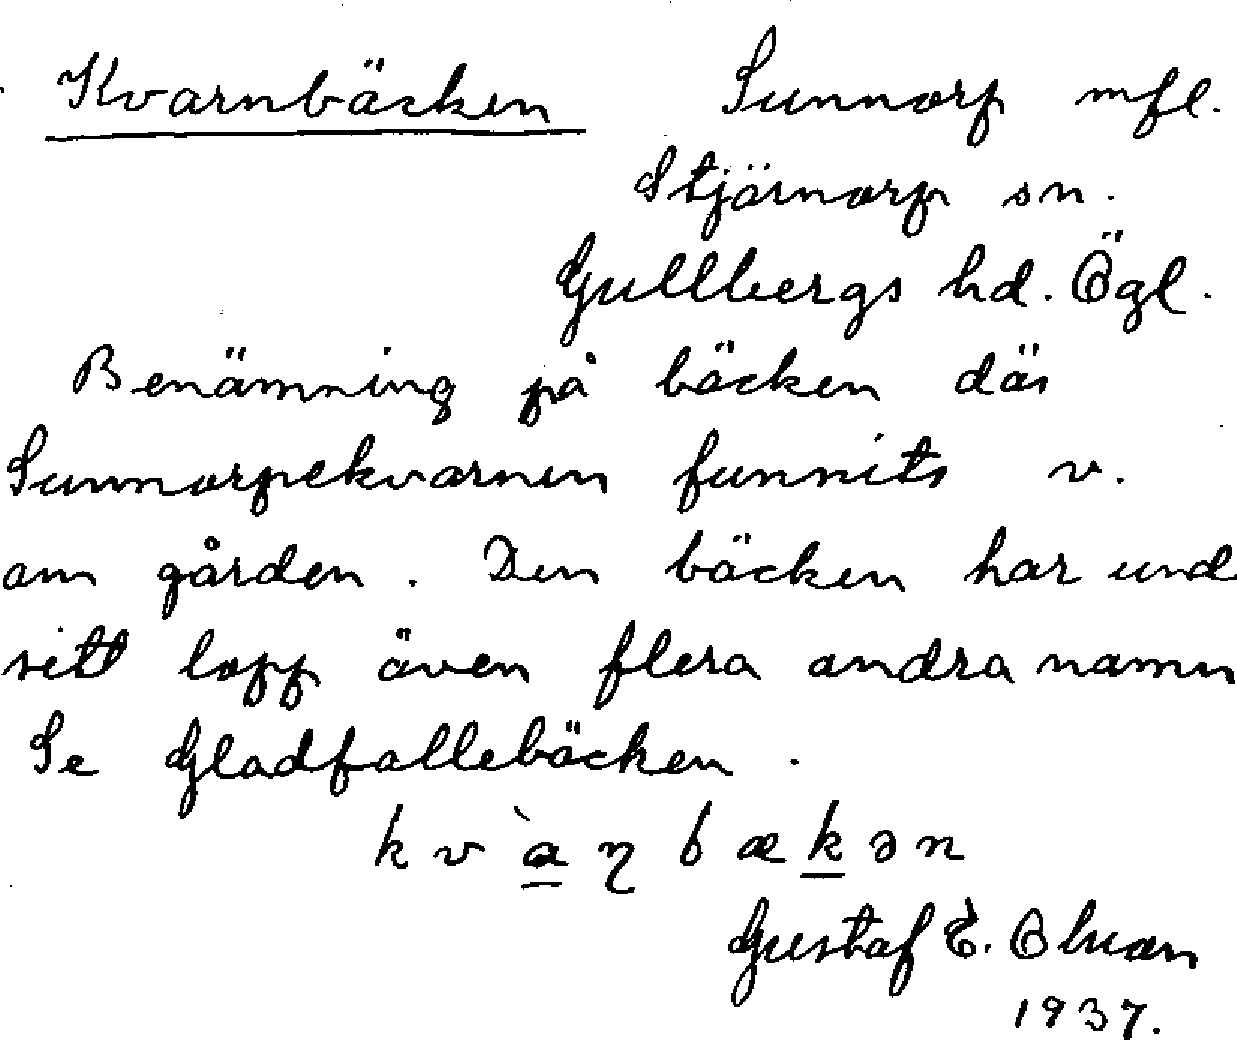 Kvarnbäcken Sunnorp mfl.
Stjärnorp sn.
Gullbergs hd. Ögl.
Benämning på bäcken där
Sunnorpekvarnen funnits v.
om gården. Den bäcken har und
sitt lopp även flera andra namn
Se Gladfallebäcken.
kv̀aɳbækən
Gustaf E.
1937.